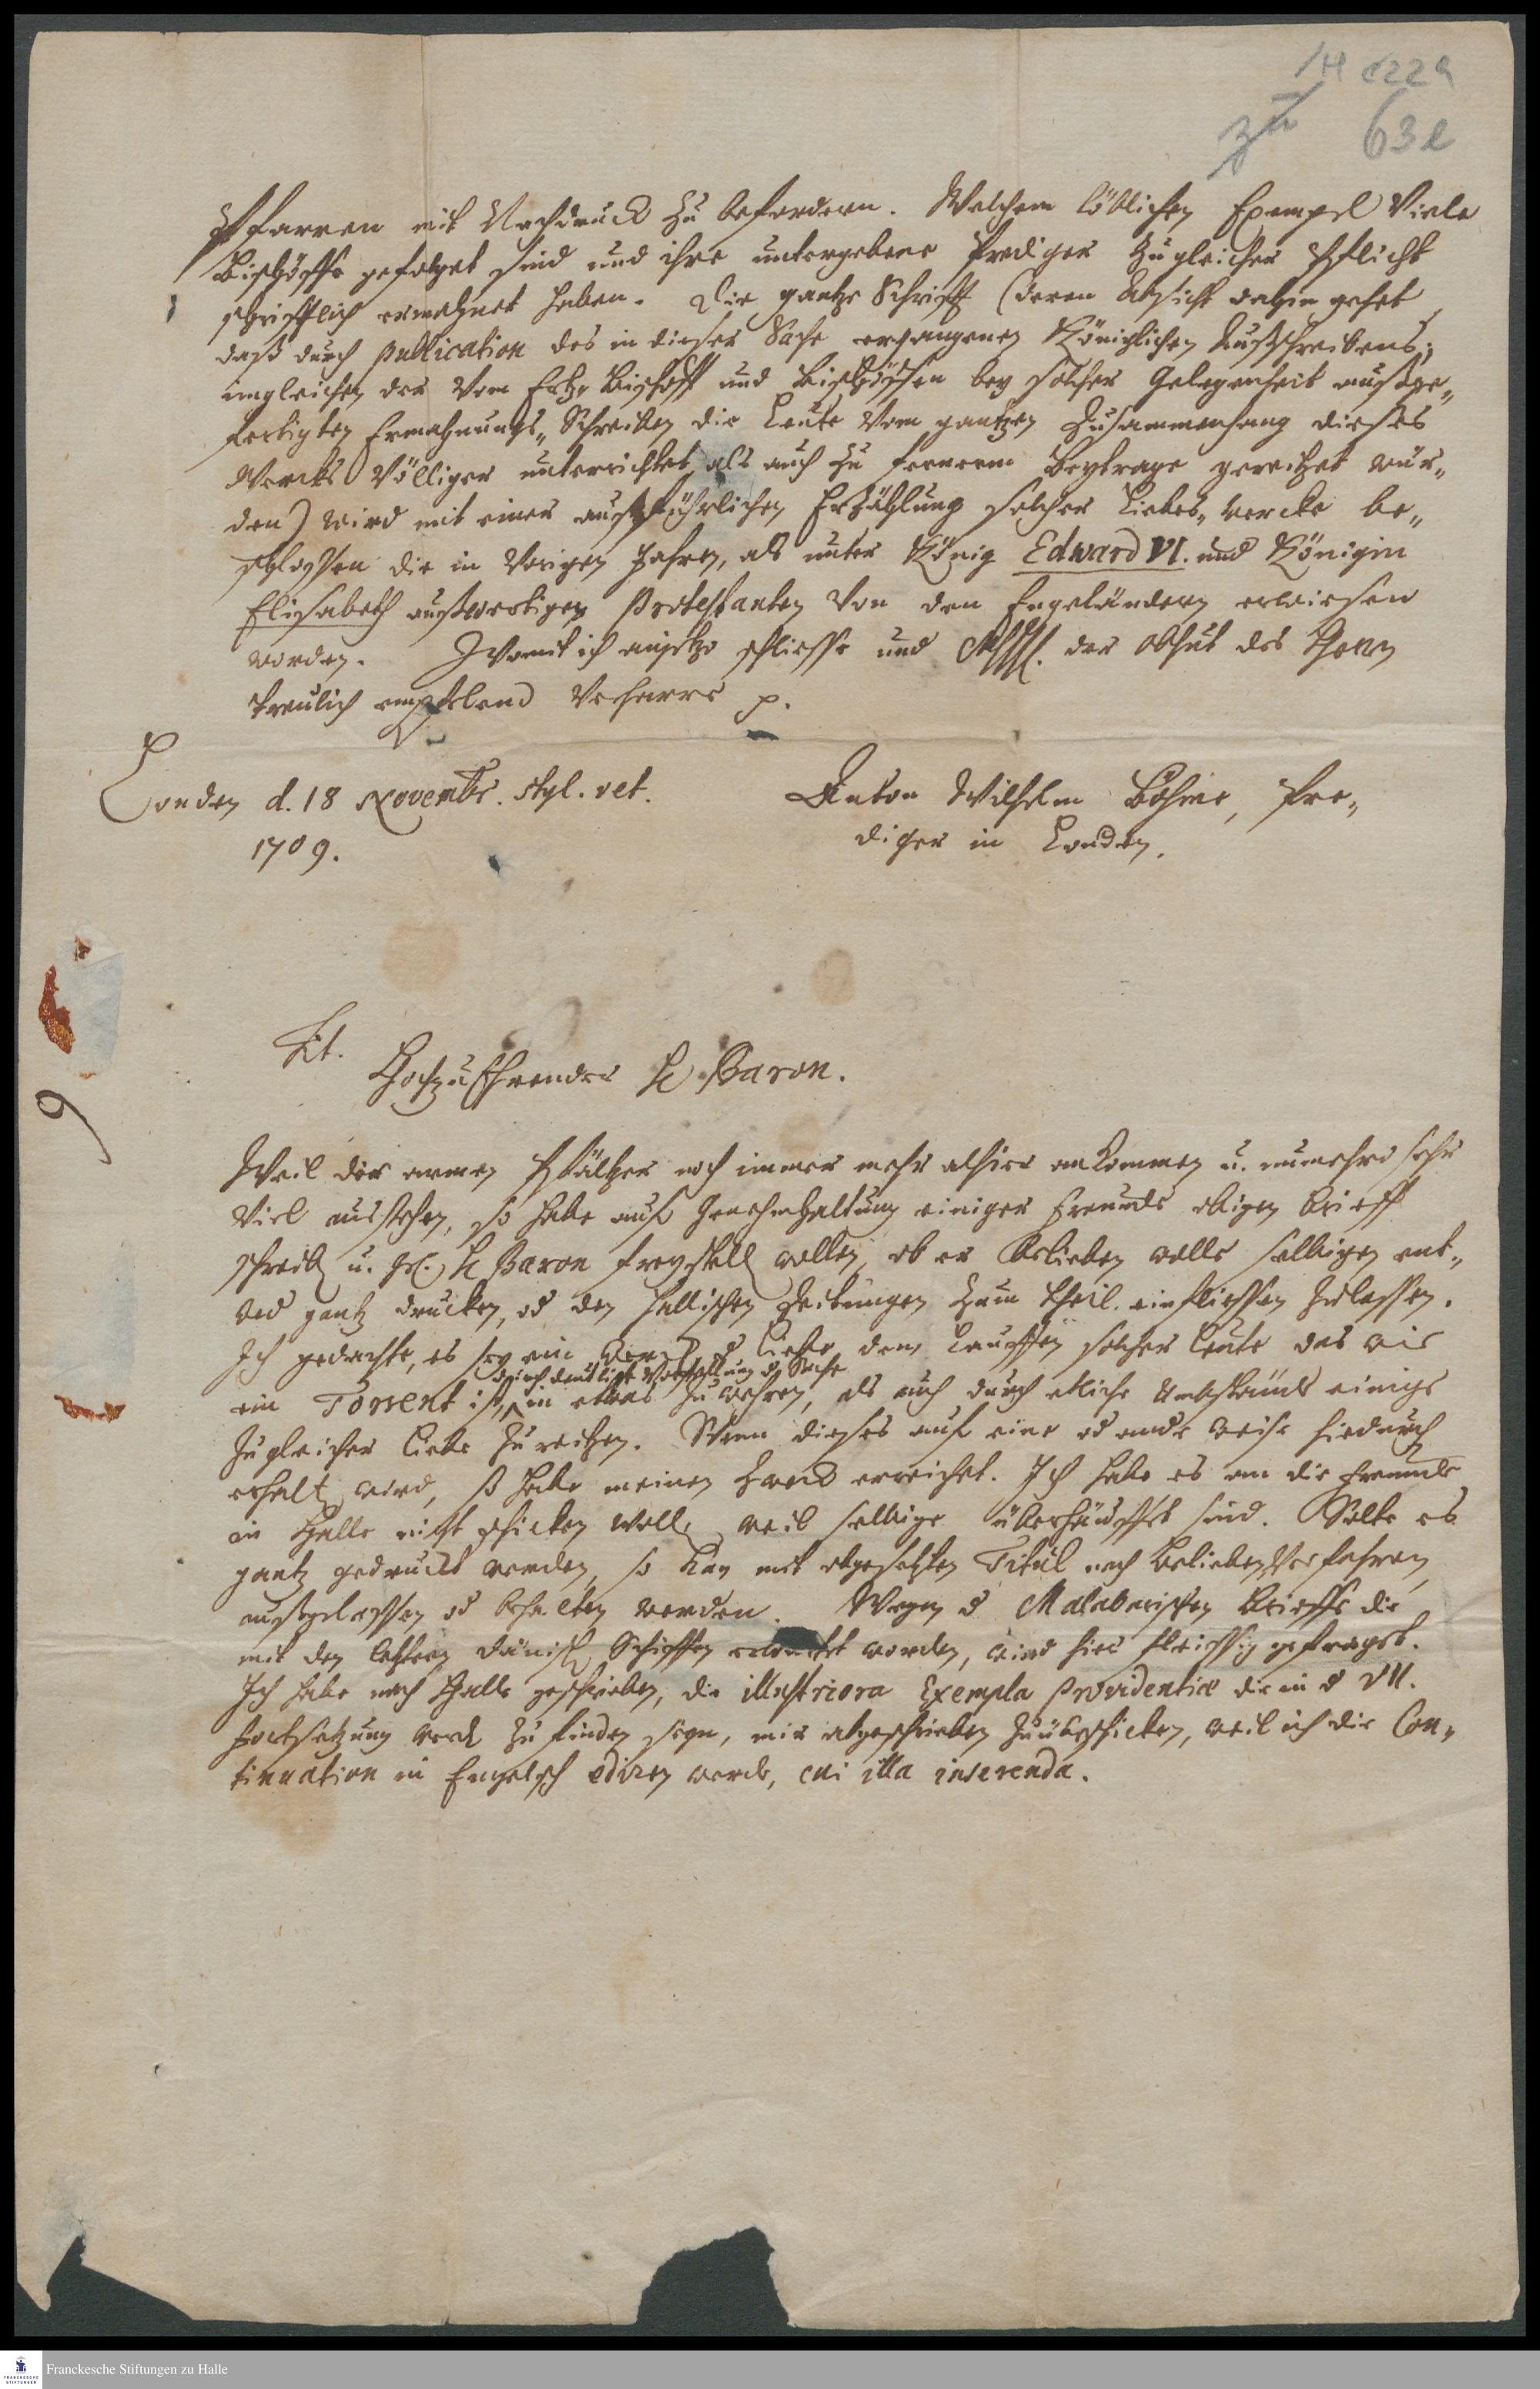 1H c22a
zu 63 e
Pfarren mit Nachdruck zu befordern. Welchem löblichen Exempel Viele
Bischöffe gefolget sind und ihre untergebene Prediger zu gleicher Pflicht
schrifftlich ermahnet haben. Die gantze Schrifft (deren Absicht dahin gehet
daß durch publication des in dieser Sache ergangenen Königlichen Ausschreibens,
imgleichen der vom Ertz-Bischoff und Bischöffen bey solcher Gelegenheit außge-
fertigten Ermahnungs-Schreiben die Leute vom gantzen Zusammenhang dieses
Wercks völliger unterrichtet, als auch zu fernerm Beytrage gereitzet wür-
den) wird mit einer außführlichen Erzählung solcher Liebes-wercke be-
schlossen die in vorigen Jahren, als unter König Edward VI. und Königin
Elisabeth außwertigen Protestanten von den Engeländern erwiesen
worden. Womit ich anjetzo schliesse und der Obhut des Herrn
treulich empfelend verharre p.
London d. 18 Novembr. styl. vet.
1709.
Anton Wilhelm Böhme, Pre-
diger in London.
Tit.
Hochzuehrender H Baron.
Weil der armen Pfältzer noch immer mehr alhier ankommen u. nunmehro sehr
viel ausstehen, so habe auf Genehmhaltung einiger Freunde obigen brieff
schreib u. H Baron freystell wollen, ob er belieben wolle selbigen ent-
wed gantz drucken, od den Hallischen Zeitungen zum theil einfliessen zulassen.
Ich gedachte, es sey ein d Liebe dem Lauffen solcher Leute das wie
durch deutliche Vorstellung d Sache
ein Torrent ist, in etwas zu wehren, als auch durch etliche Umbstände einige
zu gleicher Liebe zu reitzen. Wenn dieses auf eine od ande weise hiedurch
erhalt wird, so habe meinen Zweck erreichet. Ich habe es an die Freunde
in Halle nicht schicken woll, weil selbige überhäuffet sind. Solte es
gantz gedruckt werden, so kan mit obgesetzten Titul nach belieben verfahren,
außgelassen od behalten werden. Wegen d Malabarischen Brieffe die
mit den letztern dänisch Schiffen worden, wird hier fleissig gefraget.
Ich habe nach Halle geschrieben, die illustriora Exempla Providentiæ die in d VII.
Fortsetzung werd zu finden seyn, mir abgeschrieben zuüberschicken, weil ich die Con-
tinuation in Englisch ediren werde, cui illa inserenda.
9
Franckesche Stiftungen zu Halle